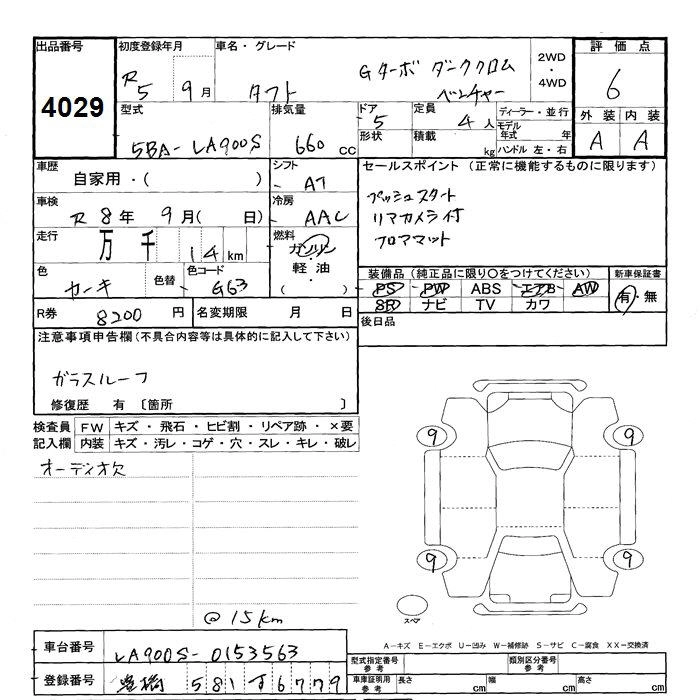 出品番号
4029
初度登録年月
R 5 9月
車名・グレード
タフト Gターボ ダーククロム
ベンチャー
2WD
・
4WD
評価点
6
外装 内装
A A
型式
5BA-LA900S
排気量
660 cc
ドア
5
形状
定員
4人
積載
kg
ディーラー・並行
モデル年式 年
ハンドル 左・右
車歴
自家用・( )
シフト
AT
車検
R 8年 9月( 日)
冷房
AAC
走行
万 千 14 km
燃料
ガソリン
・
軽油
( )
色
カーキ
色替
色コード
G63
セールスポイント (正常に機能するものに限ります)
プッシュスタート
リアカメラ付
フロアマット
装備品(純正品に限り○をつけてください)
PS PW ABS エアB AW
SR ナビ TV カワ
新車保証書
有・無
R券
8200 円
名変期限 月 日
後日品
注意事項申告欄(不具合内容等は具体的に記入して下さい)
ガラスルーフ
修復歴 有 〔箇所 〕
検査員
記入欄
FW キズ・飛石・ヒビ割・リペア跡・×要
内装 キズ・汚レ・コゲ・穴・スレ・キレ・破レ
オーディオ欠
@15km
9
9
9
9
スペア
A-キズ E-エクボ U-凹み W-補修跡 S-サビ C-腐食 XX-交換済
車台番号
LA900S-0153563
登録番号
豊橋 581 す 6779
型式指定番号
参考
類別区分番号
参考
車庫証明用
参考
長さ cm
幅 cm
高さ cm